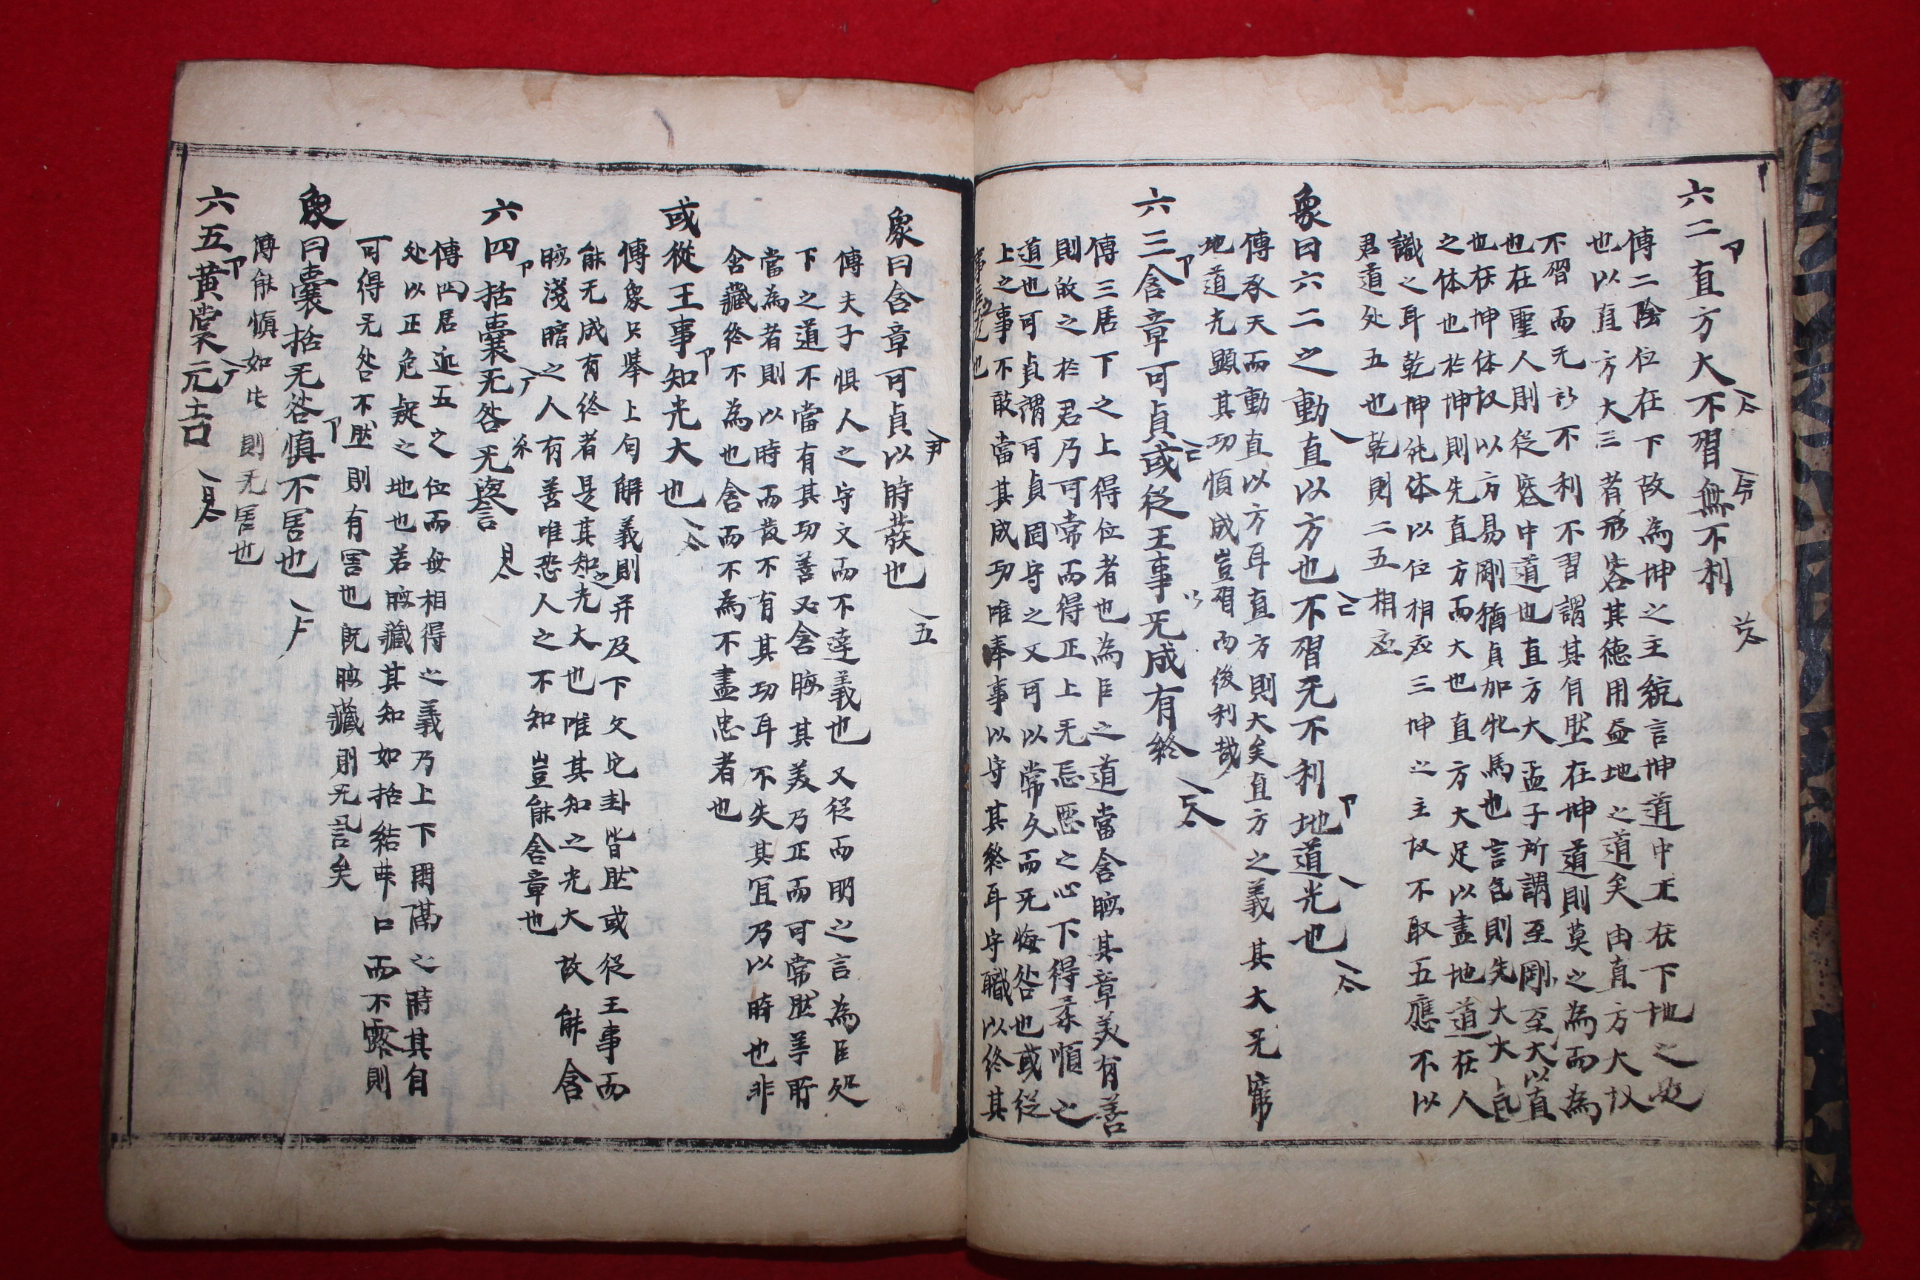 六二直方大不習無不利
傳二陰位在下故為坤之主統言坤道中正在下地之道
也以直方大三者形容其德用盡地之道矣由直方大故
不習而无所不利不習謂其自然在坤道則莫之為而為
也在聖人則從容中道也直方大孟子所謂至剛至大以直
也在坤体故以方易剛猶貞加牝馬也言氣則先大大氣
之体也於坤則先直方而大也直方大足以盡地道在人
識之耳乾坤純体以位相应三坤之主故不取五應不以
君道处五也乾則二五相应
象曰六二之動直以方也不習无不利地道光也
傳承天而動直以方耳直方則大矣直方之義其大无窮
地道光顯其功順成豈習而後利哉
六三含章可貞或從王事无成有終
傳三居下之上得位者也為臣之道當含晦其章美有善
則故之於君乃可常而得正上无忌惡之心下得柔順之
道也可貞謂可貞固守之又可以常久而无悔咎也或從
上之事不敢當其成功唯奉事以守其終耳守職以終其
象曰含章可貞以時發也
傳夫子惧人之守文而不達義也又從而明之言為臣処
下之道不當有其功善必含晦其美乃正而可常然義所
當為者則以時而發不有其功耳不失其宜乃以時也非
含藏終不為也含而不為不盡忠者也
或從王事知光大也
傳象只舉上句解義則并及下文它卦皆然或從王事而
能无成有終者是其知之光大也唯其知之光大故能含
晦淺暗之人有善唯恐人之不知豈能含章也
六四括囊无咎无譽
傳四居近五之位而无相得之義乃上下閉隔之時其自
处以正危疑之地也若晦藏其知如括結囊口而不露則
可得无咎不然則有害也旣晦藏則无譽矣
象曰囊括无咎慎不害也
傳能慎如此則无害也
六五黃裳元吉